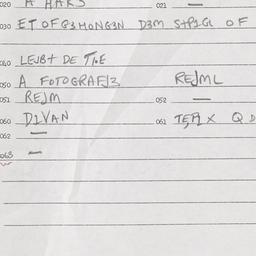 020 A HAKS 021 —
030 ET OF G3 HONG3N D3M STP1GL OF
040 LEJBT DE TIE
050 A FOTOGRAFJ3 REJML
051 REJM 052 —
060 D1VAN 061 TEPPIX Q D
062 —
063 —